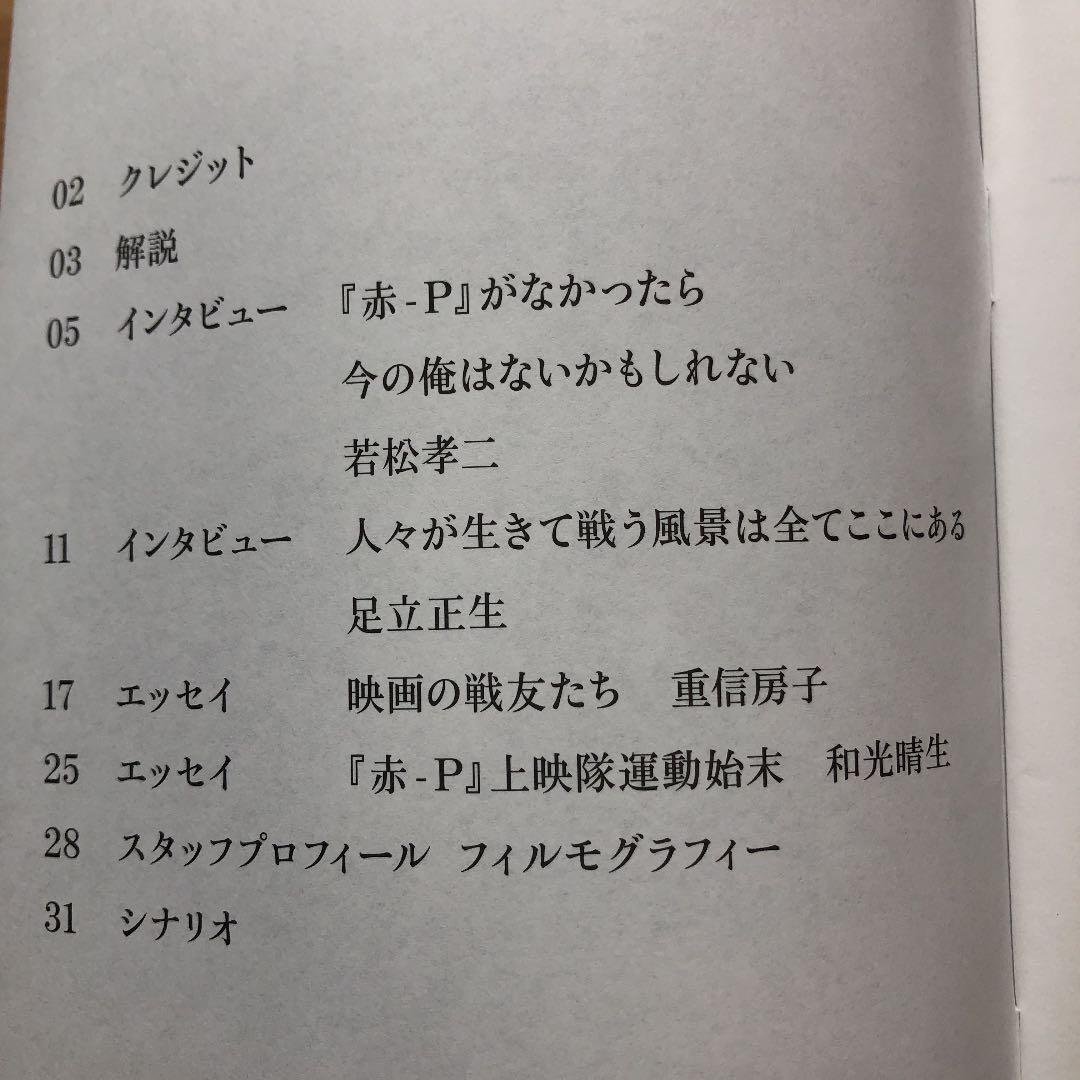 02 クレジット
03 解説
05 インタビュー 『赤-P』がなかったら
今の俺はないかもしれない
若松孝二
11 インタビュー 人々が生きて戦う風景は全てここにある
足立正生
17 エッセイ 映画の戦友たち 重信房子
25 エッセイ 『赤-P』上映隊運動始末 和光晴生
28 スタッフプロフィール フィルモグラフィー
31 シナリオ